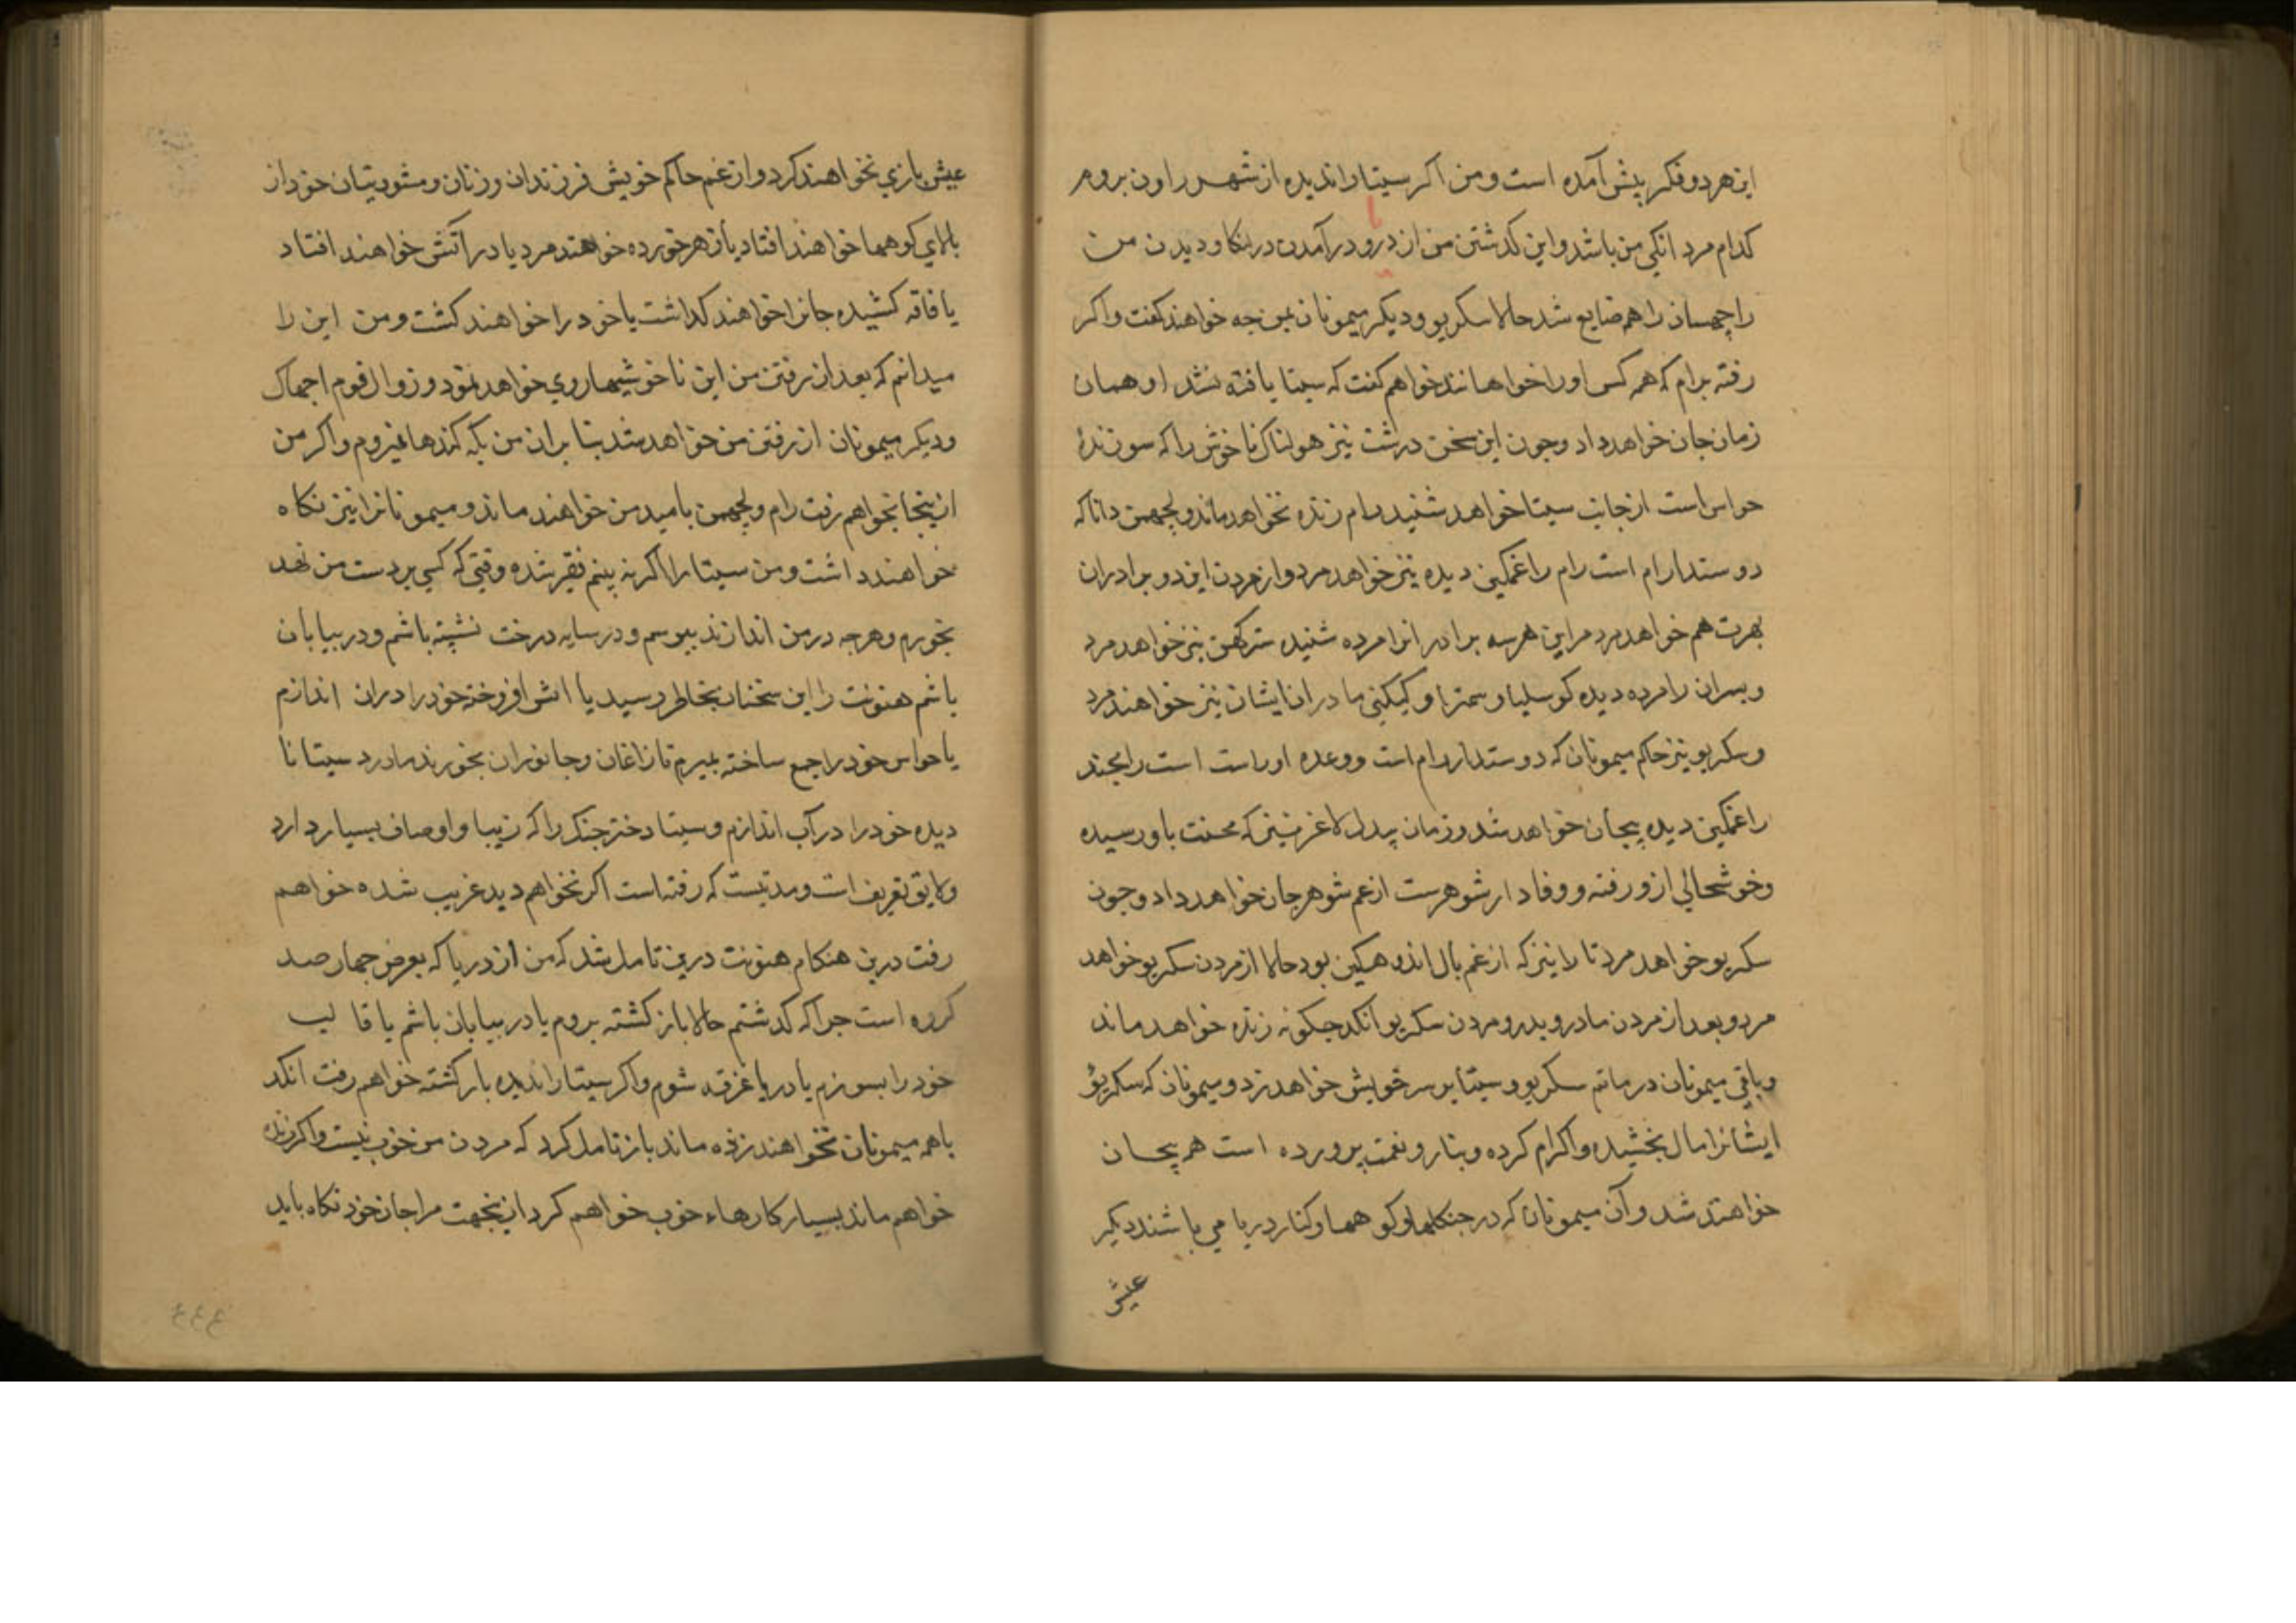 این هر دو فکر پیش آمده است و من اگر سیتا را ندیده از شهر راون بروم
کدام مردانکی من باشد و این کذشتن من از درو درآمدن در لنکا و دیدن من
راچهسان را هم ضایع شد حالا سکریو و دیکر میمونان بمن جه خواهند کفت و اکر
رفته برام که همه کس او را خواهانند خواهم کفت که سیتا یافته نشد او همان
زمان جان خواهد داد و جون این سخن درشت نیز هولناک ناخوش را که سوزندهٔ
حواس است از جانب سیتا خواهد شنید رام زنده نخواهد ماند و لچهمن دانا که
دوستدار رام است رام را غمکین دیده نیز خواهد مرد و از مردن این دو برادران
بهرت هم خواهد مرد مر این هر سه برادرانرا مرده شنیده سترکهن نیز خواهد مرد
و پسران را مرده دیده کوسلیا و سمترا و کیکیی مادران ایشان نیز خواهند مرد
و سکریو نیز حاکم میمونان که دوستدار رام است و وعده او راست است رامچند
را غمکین دیده بیجان خواهد شد و زمان بیدل لاغر که محنت باو رسیده
و خوشحالی ازو رفته و وفادار شوهرست از غم شوهر جان خواهد داد و جون
سکریو خواهد مرد تارا نیز که از غم بال اندوهکین بود حالا از مردن سکریو خواهد
مرد و بعد از مردن مادر و پدر و مردن سکریو انکد جکونه زنده خواهد ماند
و باقی میمونان در ماتم سکریو و سیتا بر سر خویش خواهد زد و میمونان که سکریو
ایشانرا مال بخشیده و اکرام کرده و بناز و نعمت پرورده است هم بیجان
خواهند شد و آن میمونان که در جنکلها و کوهها و کنار دریا می باشند دیکر
عیش
عیش بازی نخواهند کرد و از غم حاکم خویش فرزندان و زنان و مشورتیان خود از
بالای کوهها خواهند افتاد یا زهر خورده خواهند مرد یا در آتش خواهند افتاد
یا فاقه کشیده جانرا خواهند کذاشت یا خود را خواهند کشت و من این را
میدانم که بعد از رفتن من این ناخوشیها روی خواهد نمود و زوال قوم اجهاک
و دیکر میمونان از رفتن من خواهد شد بنا بران من بکه کندها نمیروم و اکر من
ازینجا نخواهم رفت رام و لچهمن بامید من خواهند ماند و میمونانرا نیز نکاه
خواهند داشت و من سیتا را اکر نه بینم فقیر شده وقتی که کسی بر دست من نهد
بخورم و هر جه در من اندازند بپوسم و در سایه درخت نشسته باشم و در بیابان
باشم هنونت را این سخنان بخاطر رسید یا اتش افروخته خود را دران اندازم
یا حواس خود را جمع ساخته بمیرم تا زاغان و جانوران بخورند مادرد سیتا نا
دیده خود را در آب اندازم و سیتا دختر جنک را که زیبا و اوصاف بسیار دارد
و لایق تعریف است و مدتیست که رفته است اکر نخواهم دید غریب شده خواهم
رفت درین هنکام هنونت درین تامل شد که من از دریا که بعرض جهار صد
کروه است جرا که کذشتم حالا باز کشته بروم یا در بیابان باشم یا قالب
خود را بسوزم یا در دریا غرقه شوم و اکر سیتا را ندیده باز کشته خواهم رفت انکد
با همه میمونان نخواهند زنده ماند باز تامل کرد که مردن من خوب نیست و اکر زنده
خواهم ماند بسیار کارهاء خوب خواهم کرد ازینجهت مرا جان خود نکاه باید
۴۴۴